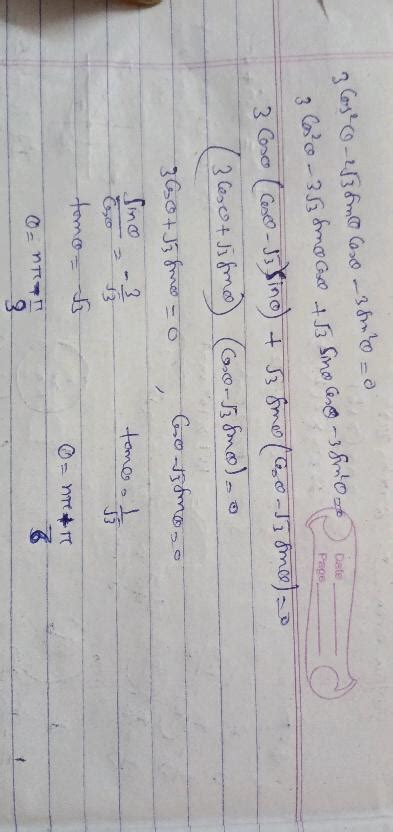 3 Cos²θ - 2√3 sinθ Cosθ - 3 sin²θ = 0
3 Cos²θ - 3√3 sinθ Cosθ + √3 sinθ Cosθ - 3 sin²θ = 0
Date
Page
3 Cosθ (Cosθ - √3 sinθ) + √3 sinθ (Cosθ - √3 sinθ) = 0
(3 Cosθ + √3 sinθ) (Cosθ - √3 sinθ) = 0
3 Cosθ + √3 sinθ = 0 , Cosθ - √3 sinθ = 0
sinθ/Cosθ = -3/√3 tanθ = 1/√3
tanθ = -√3 θ = nπ + π/6
θ = nπ - π/3